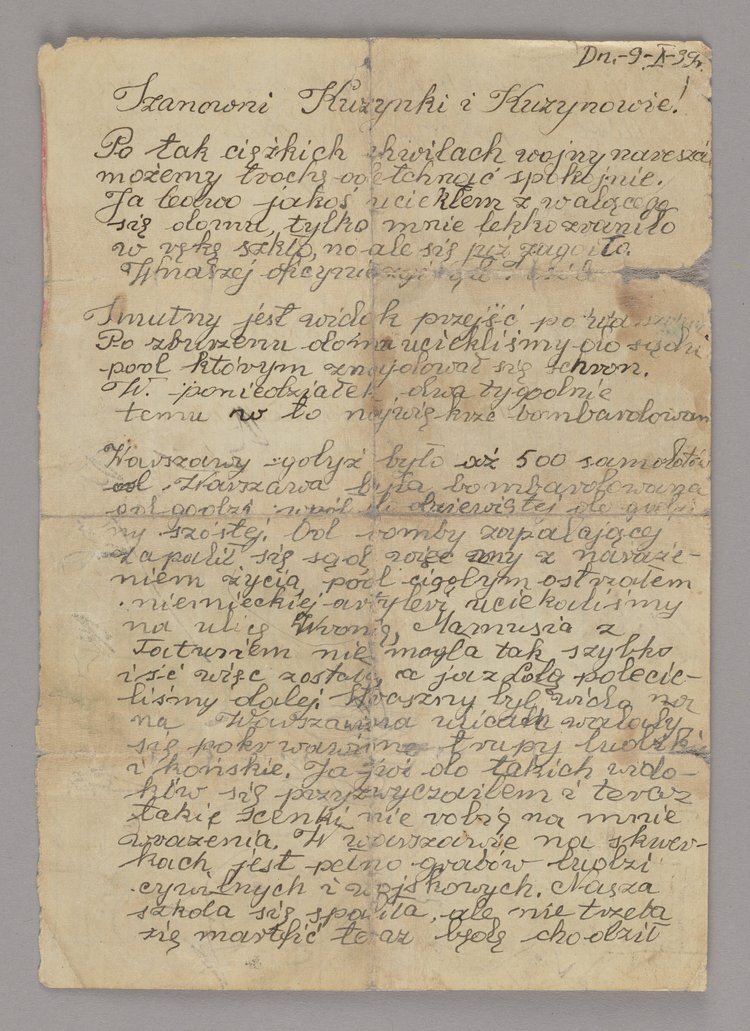 Dn.-9-X-39r.
Szanowni Kuzynki i Kuzynowie!
Po tak ciężkich chwilach wojny nareszci
możemy trochę odetchnąć spokojnie.
Ja ledwo jakoś uciekłem z walącego
się domu, tylko mnie lekko zraniło
w rękę szkło, no ale się już zagoiło.
W naszej
Smutny jest widok przejść po
Po zburzeniu domu uciekliśmy do sądu
pod którym znajdował się schron.
W. poniedziałek, dwa tygodnie
temu w to największe bombardowan
Warszawy gdyż było aż 500 samolotów
Warszawa była bombardowana
od godzi wpół do dziewiątej do godzi
ny szóstej. Od bomby zapalającej
zapalił się sąd więc my z naraże-
niem życia pod ciągłym ostrzałem
niemieckiej artylerj uciekaliśmy
na ulicę Wronią, Mamusia z
Tatusiem nie mogła tak szybko
iść więc została, a ja z Lolą polecie-
liśmy dalej. Straszny był widok na
na ulicach walały
się pokrwawione trupy ludzkie
i końskie. Ja już do takich wido-
ków się przyzwyczaiłem i teraz
takie scenki nie robią na mnie
wrażenia. W warszawie na skwer-
kach jest pełno grobów ludzi
cywilnych i wojskowych. Nasza
szkoła się spaliła, ale nie trzeba
się martfić teraz będę chodził